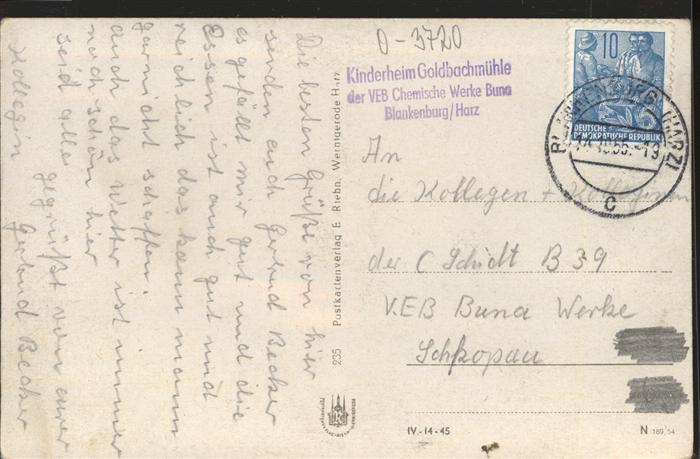 Die besten Grüße von hier
senden auch Gertrud Becker
es gefällt mir gut und die
Essen ist auch gut und
reichlich das kann mann
garnicht schaffen.
auch das Wetter ist immer
noch schön hier
seid alle gegrüßt von eurer
Kollegin Gertrud Becker
235 Postkartenverlag E. Riehn, Wernigerode Harz
0-3720
Kinderheim Goldbachmühle
der VEB Chemische Werke Buna
Blankenburg/Harz
10
DEUTSCHE
DEMOKRATISCHE REPUBLIK
BLANKENBURG (HARZ)
-19
c
An
die Kollegen + Kolleginnen
der C Schicht B 39
VEB Buna Werke
Schkopau
IV-14-45
N 169/54